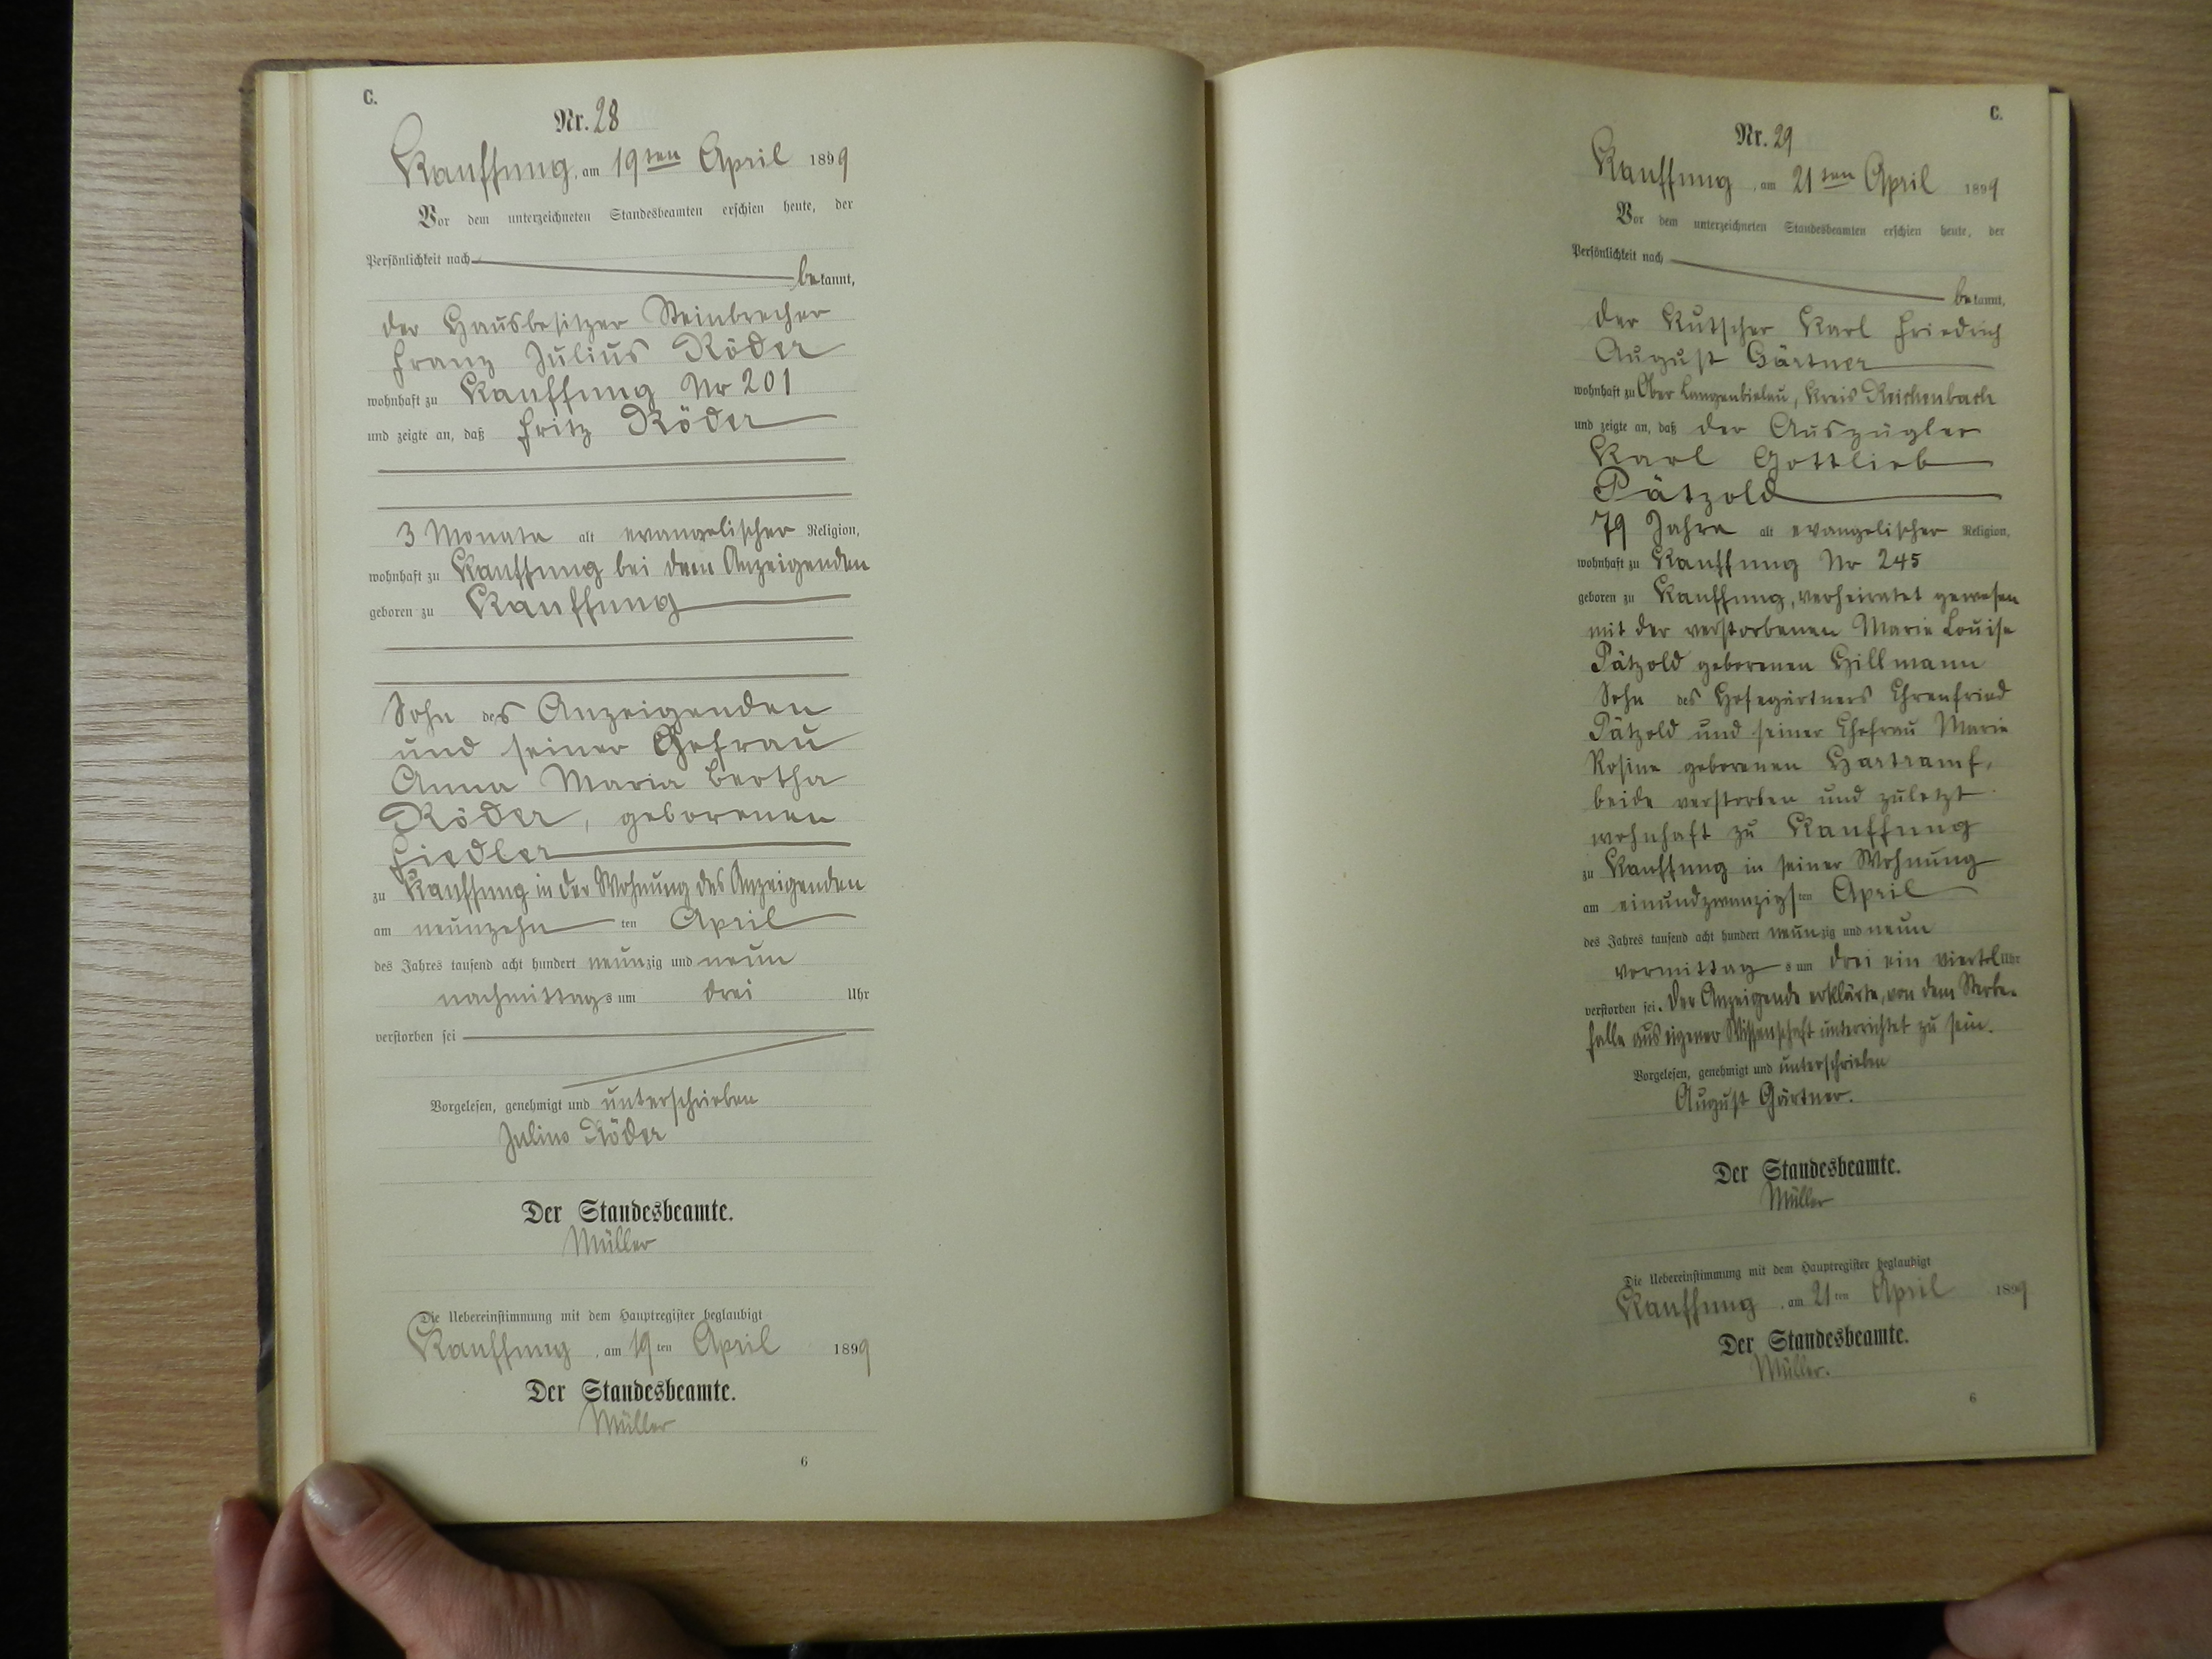 C.
Nr. 28
Kauffung, am 19ten April 1899
Vor dem unterzeichneten Standesbeamten erschien heute, der
Persönlichkeit nach
bekannt,
der Hausbesitzer Steinbrecher
Franz Julius Röder
wohnhaft zu Kauffung Nr 201
und zeigte an, daß Fritz Röder
3 Monate alt evangelischer Religion,
wohnhaft zu Kauffung bei dem Anzeigenden
geboren zu Kauffung
Sohn des Anzeigenden
und seiner Ehefrau
Anna Maria Bertha
Röder, geborenen
Fiedler
zu Kauffung in der Wohnung des Anzeigenden
am neunzehn ten April
des Jahres tausend acht hundert neunzig und neun
nachmittags um drei Uhr
verstorben sei
Vorgelesen, genehmigt und unterschrieben
Julius Röder
Der Standesbeamte.
Müller
Die Uebereinstimmung mit dem Hauptregister beglaubigt
Kauffung, am 19ten April 1899
Der Standesbeamte.
Müller
6
C.
Nr. 29
Kauffung, am 21ten April 1899
Vor dem unterzeichneten Standesbeamten erschien heute, der
Persönlichkeit nach
bekannt,
der Kutscher Karl Friedrich
August Gärtner
wohnhaft zu Ober Langenbielau, Kreis Reichenbach
und zeigte an, daß der Auszügler
Karl Gottlieb
Pätzold
79 Jahre alt evangelischer Religion,
wohnhaft zu Kauffung Nr 245
geboren zu Kauffung, verheiratet gewesen
mit der verstorbenen Marie Louise
Pätzold geborenen Hillmann
Sohn des Hofegärtners Ehrenfried
Pätzold und seiner Ehefrau Marie
Rosine geborenen Hartramf,
beide verstorben und zuletzt
wohnhaft zu Kauffung
zu Kauffung in seiner Wohnung
am einundzwanzigsten April
des Jahres tausend acht hundert neunzig und neun
vormittags um drei ein viertel Uhr
verstorben sei. Der Anzeigende erklärte, von dem Sterbe-
falle aus eigener Wissenschaft unterrichtet zu sein.
Vorgelesen, genehmigt und unterschrieben
August Gärtner.
Der Standesbeamte.
Müller
Die Uebereinstimmung mit dem Hauptregister beglaubigt
Kauffung, am 21ten April 1899
Der Standesbeamte.
Müller.
6